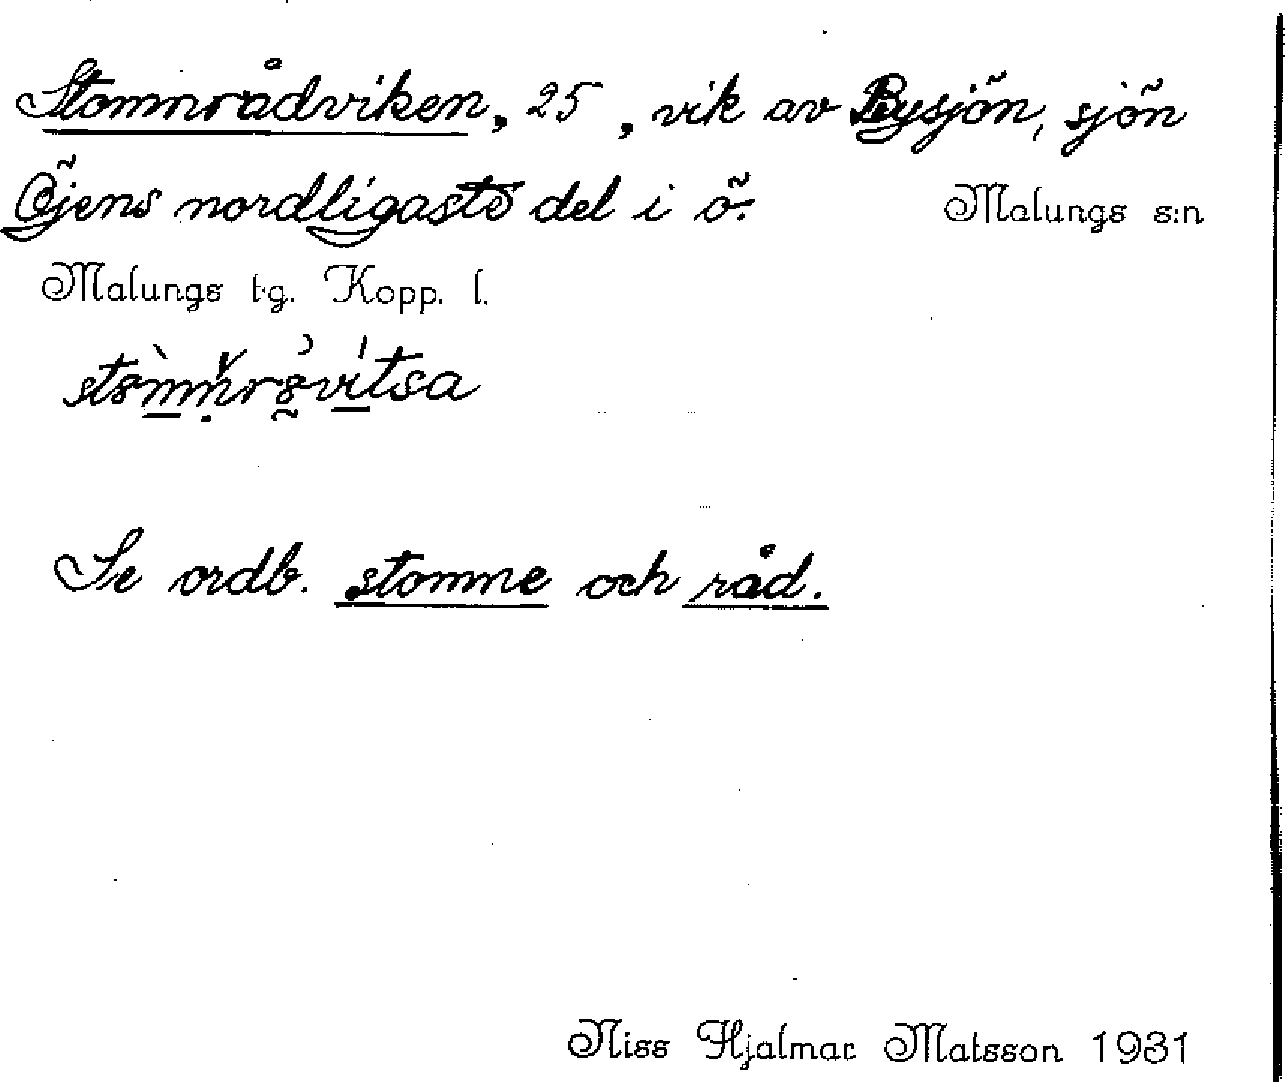 Stommrådviken, 25, vik av Bysjön, sjön
Öjens nordligaste del i ö. Malungs s:n
Malungs tg. Kopp. l.
Se ordb. stomme och råd.
Niss Hjalmar Matsson 1931